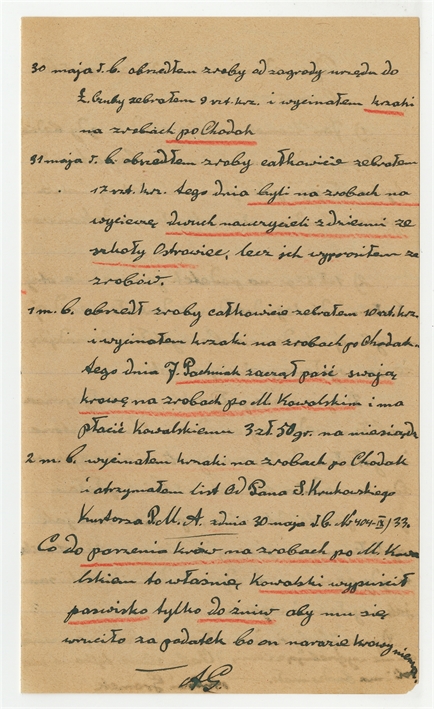 30 maja r.b. obszedłem zroby od zagrody urzędu do
Ł. Gruby zebrałem 9 szt. krz. i wycinałem krzaki
na zrobach po Chodak
31 maja r.b. obszedłem zroby całkowicie zebrałem
17 szt. krz. tego dnia byli na zrobach na
wycieczę dwuch nauczycieli z dziećmi ze
szkoły Ostrowiec, lecz ich wyprosiłem ze
zrobów.
1 m.b. obszedł zroby całkowicie zebrałem 10 szt. krz.
i wycinałem krzaki na zrobach po Chodak
tego dnia J. Pachniak zaczął paść swoją
krowę na zrobach po M. Kowalskim i ma
płacić Kowalskiemu 3 zł 50 gr. na miesiąc
2 m.b. wycinałem krzaki na zrobach po Chodak
i otrzymałem list Od Pana S. Krukowskiego
Kustosza P.M.A. z dnia 30 maja r.b. No 404-IX/33.
Co do paszenia krów na zrobach po M. Kowa
lskiem to właśnię Kowalski wypuścił
paswisko tylko do żniw aby mu się
wruciło za podatek bo on narazie krowy niema
AG.